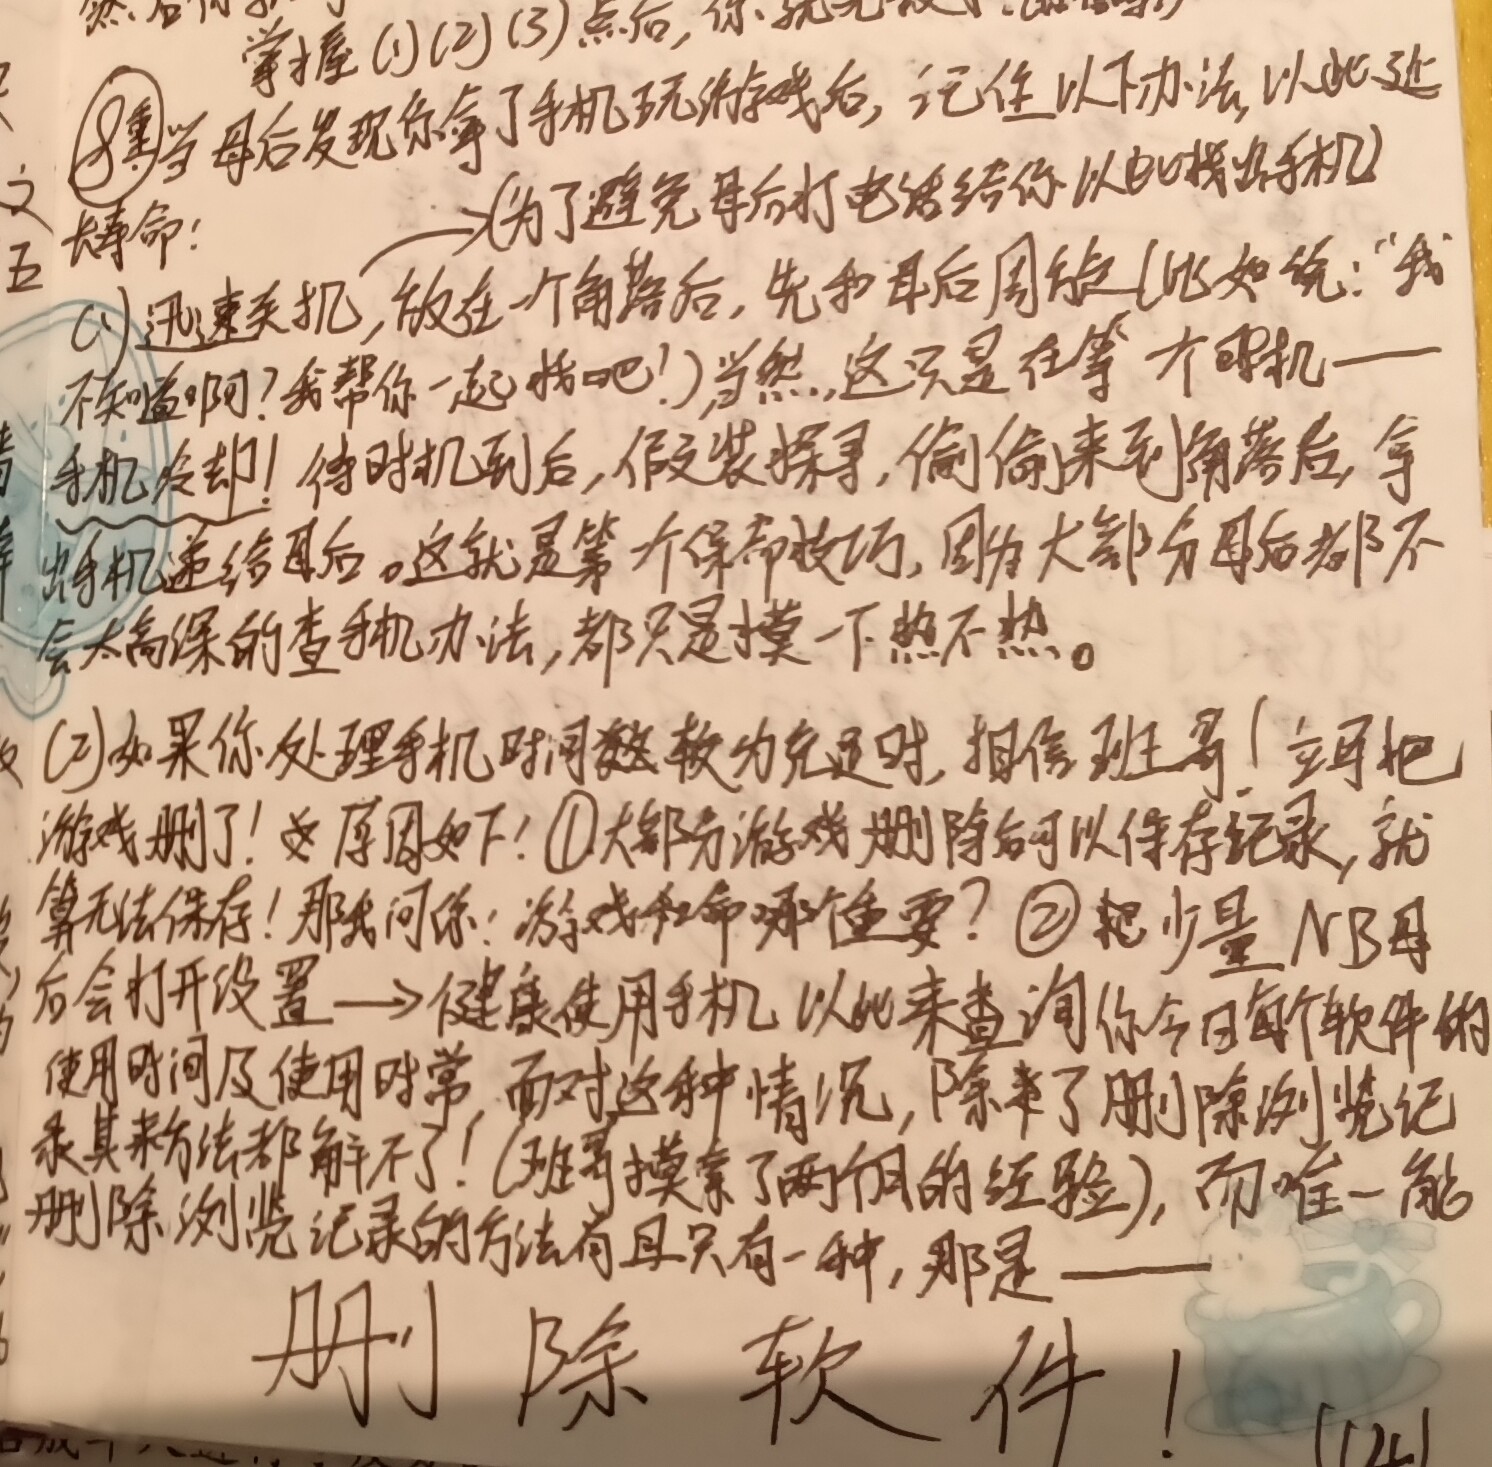 掌握(1)(2)(3)点后,你就无敌了
⑧重当母后发现你拿了手机玩游戏后,记住以下办法,以此延
长寿命:
→(为了避免母后打电话给你以此找出手机)
(1)迅速关机,放在一个角落后,先和母后周旋(比如说:“我
不知道啊?我帮你一起找吧!),当然,这只是在等一个时机——
手机冷却!待时机到后,假装探寻,偷偷来到角落后,拿
出手机递给母后。这就是第一个保命技巧,因为大部分母后都不
会太高深的查手机办法,都只是摸一下热不热。
(2)如果你处理手机时间较为充足时,相信班哥!立马把
游戏删了!原因如下!①大部分游戏删除后可以保存记录,就
算无法保存!那我问你:游戏和命哪个重要?②把少量NB母
后会打开设置→健康使用手机 以此来查询你今日每个软件的
使用时间及使用时常,面对这种情况,除了删除浏览记
录其来方法都解不了!(班哥摸索了两个月的经验),而唯一能
删除浏览记录的方法有且只有一种,那是——
删除软件!